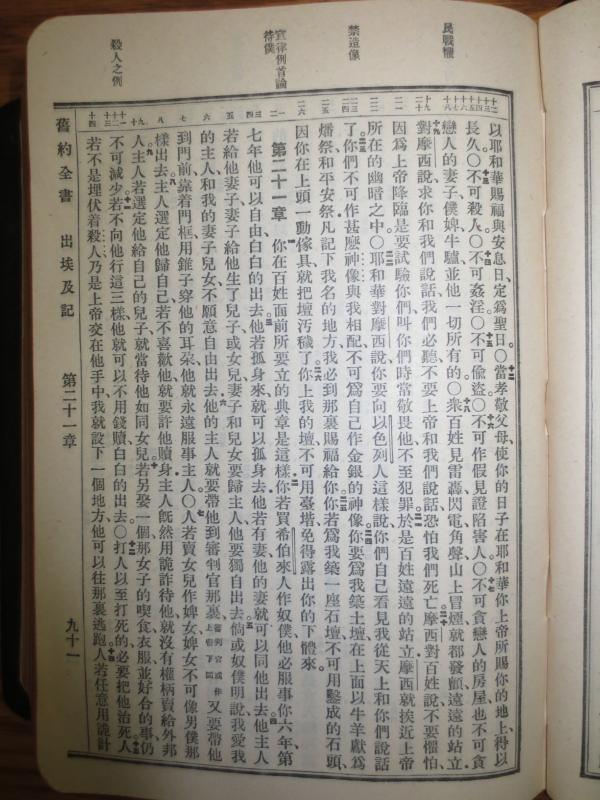 民戰懼
禁造像
宣律例首論待僕
殺人之例
以耶和華賜福與安息日、定爲聖日。○當孝敬父母、使你的日子在耶和華你上帝所賜你的地上、得以
長久。○不可殺人。○不可姦淫。○不可偷盜。○不可作假見證陷害人。○不可貪戀人的房屋、也不可貪
戀人的妻子、僕婢、牛驢、並他一切所有的。○衆百姓見雷轟、閃電、角聲、山上冒煙、就都發顫、遠遠的站立、
對摩西說、求你和我們說話、我們必聽、不要上帝和我們說話、恐怕我們死亡。摩西對百姓說、不要懼怕、
因爲上帝降臨、是要試驗你們、叫你們時常敬畏他、不至犯罪。於是百姓遠遠的站立、摩西就挨近上帝
所在的幽暗之中。○耶和華對摩西說、你要向以色列人這樣說、你們自己看見我從天上和你們說話
了。你們不可作甚麽神像與我相配、不可爲自己作金銀的神像。你要爲我築土壇、在上面以牛羊獻爲
燔祭、和平安祭、凡記下我名的地方、我必到那裏賜福給你。你若爲我築一座石壇、不可用鑿成的石頭、
因你在上頭一動傢具、就把壇汚穢了。你上我的壇、不可用臺堦、免得露出你的下體來。
第二十一章 你在百姓面前所要立的典章是這樣、你若買希伯來人作奴僕、他必服事你六年、第
七年他可以自由、白白的出去。他若孤身來、就可以孤身去、他若有妻、他的妻就可以同他出去。他主人
若給他妻子、妻子給他生了兒子或女兒、妻子和兒女要歸主人、他要獨自出去。倘或奴僕明說、我愛我
的主人、和我的妻子兒女、不願意自由出去。他的主人就要帶他到審判官那裏、審判官或作上帝下同又要帶他
到門前、靠着門框、用錐子穿他的耳朶、他就永遠服事主人。○人若賣女兒作婢女、婢女不可像男僕那
樣出去。主人選定他歸自己、若不喜歡他、就要許他贖身、主人旣然用詭詐待他、就沒有權柄賣給外邦
人。主人若選定他給自己的兒子、就當待他如同女兒。若另娶一個、那女子的喫食、衣服、並好合的事、仍
不可減少。若不向他行這三樣、他就可以不用錢贖、白白的出去。○打人以至打死的、必要把他治死。人
若不是埋伏着殺人、乃是上帝交在他手中、我就設下一個地方、他可以往那裏逃跑。人若任意用詭計
舊約全書 出埃及記 第二十一章 九十一